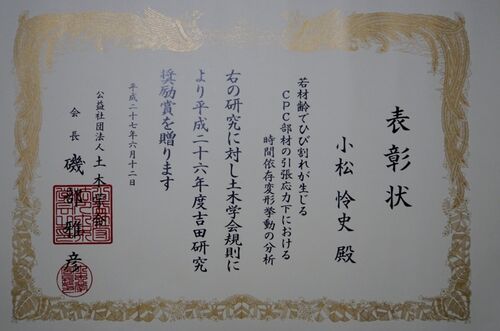 表彰状
小松 怜史 殿
若材齢でひび割れが生じる
CPC部材の引張応力下における
時間依存変形挙動の分析
右の研究に対し土木学会規則に
より平成二十六年度吉田研究
奨励賞を贈ります
平成二十七年六月十二日
公益社団法人 土木学会
会長 磯部雅彦